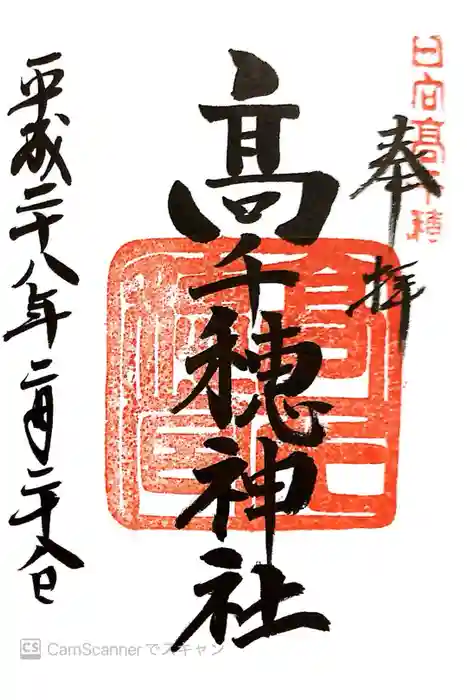 日向高千穂
奉拝
高千穂神社
平成二十八年二月二十八日
CS CamScannerでスキャン